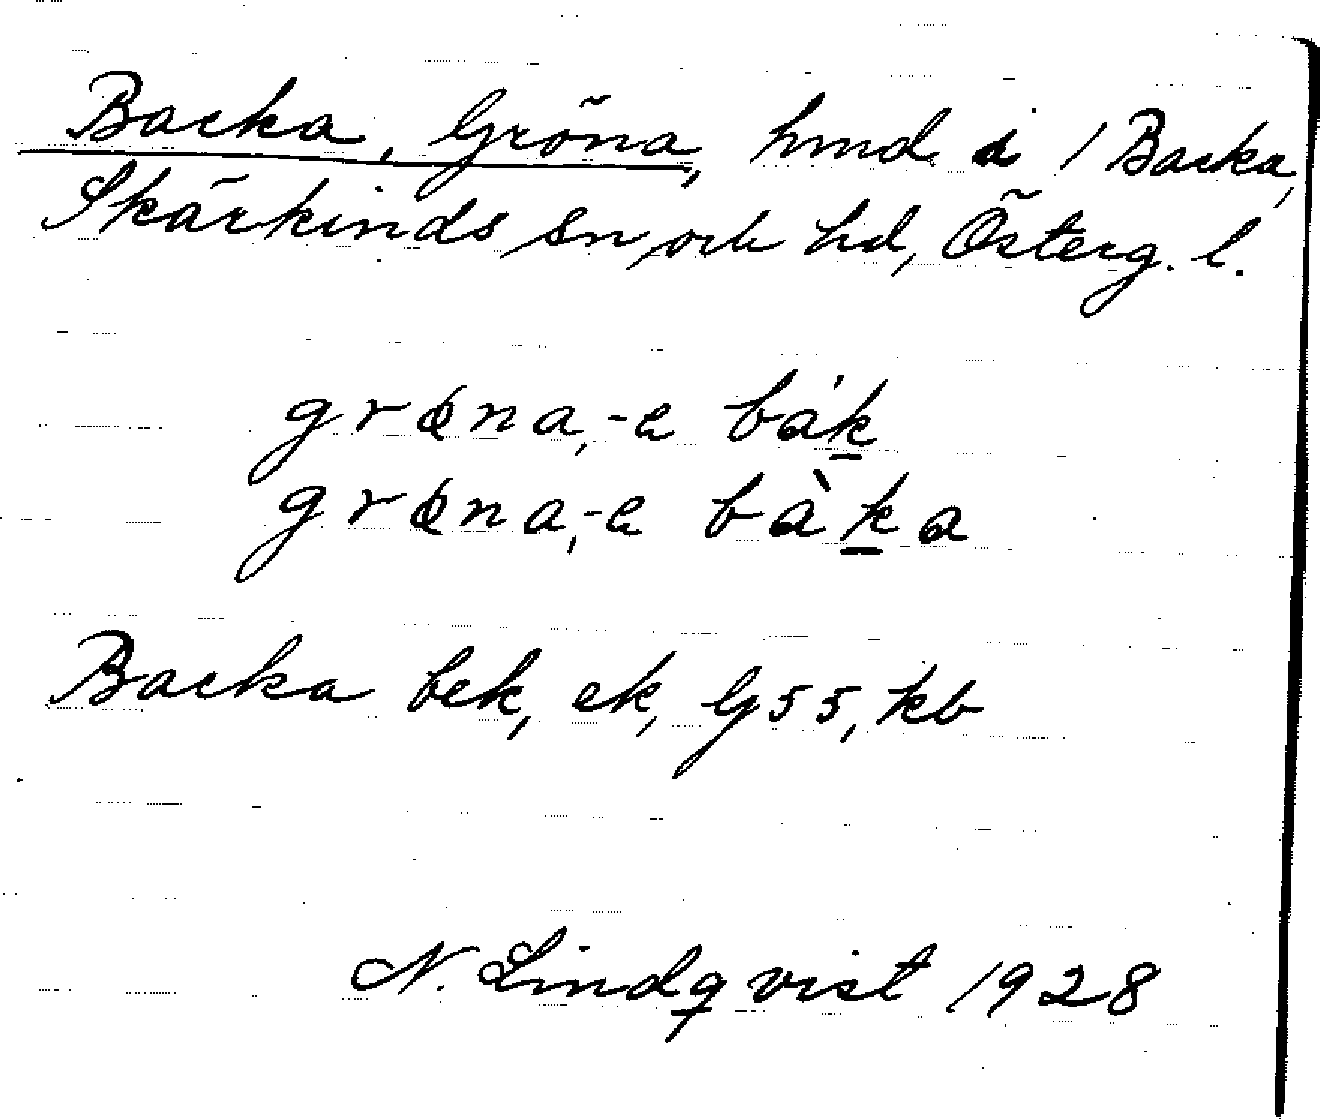 Backa, Gröna, hmd. i 1 Backa,
Skärkinds sn och hd, Österg. l.
grøna, -e bák
grøna, -e bàka
Backa bek, ek, G55, kb
N. Lindqvist 1928